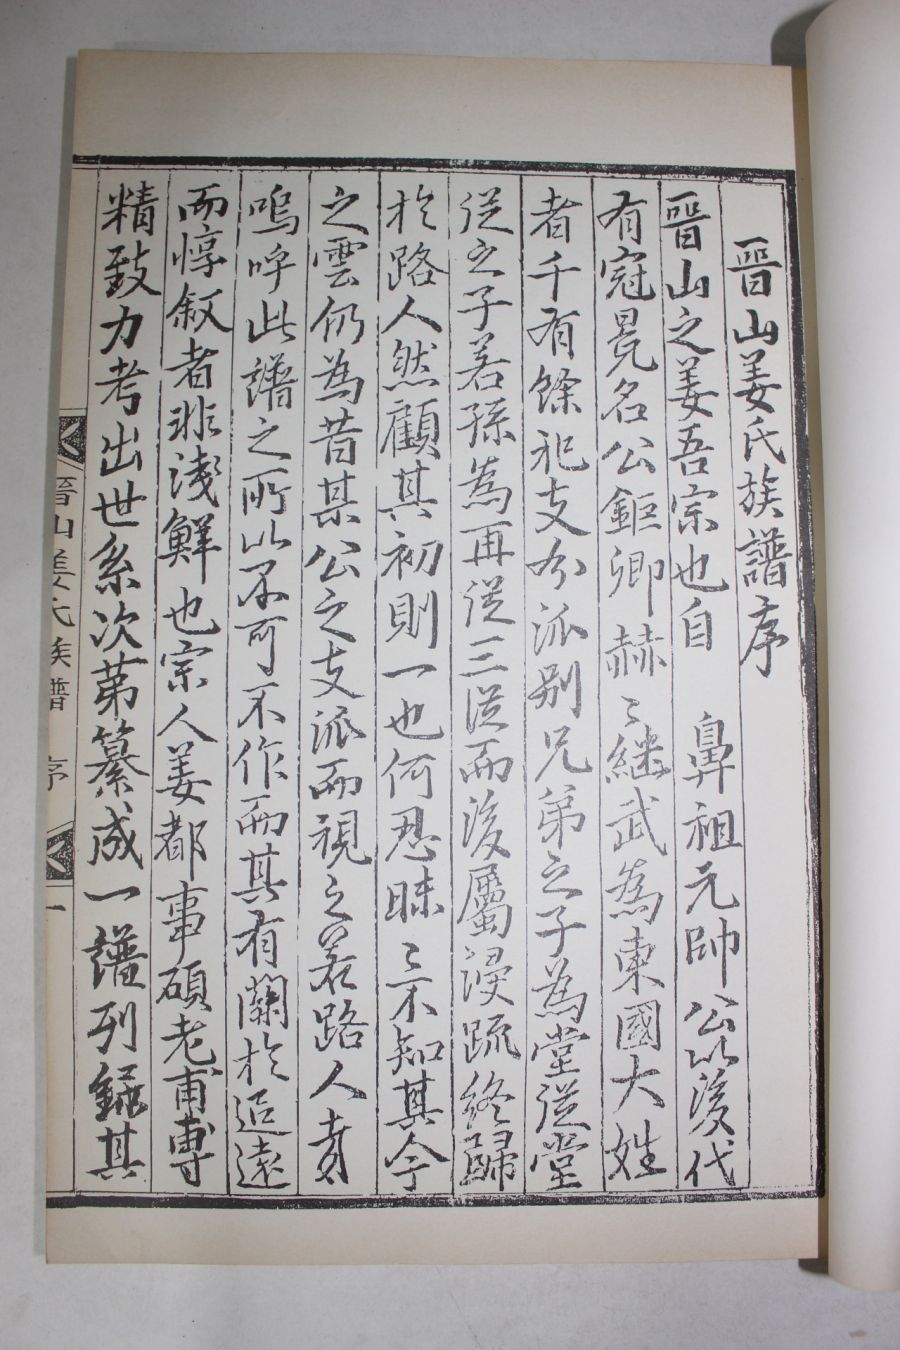 晉山姜氏族譜序
晉山之姜吾宗也自 鼻祖元帥公以後代
有冠冕名公鉅卿赫〻继武為東國大姓
者千有餘祀支分派别兄弟之子為堂從堂
從之子若孫為再從三從而後屬浸疏終歸
於路人然顧其初則一也何忍昧〻不知其今
之雲仍為昔某公之支派而視之若路人哉
嗚呼此譜之所以不可不作而其有關於追遠
而惇叙者非淺鮮也宗人姜都事碩老甫專
精致力考出世系次第纂成一譜列錄其
晉山姜氏族譜 序 一